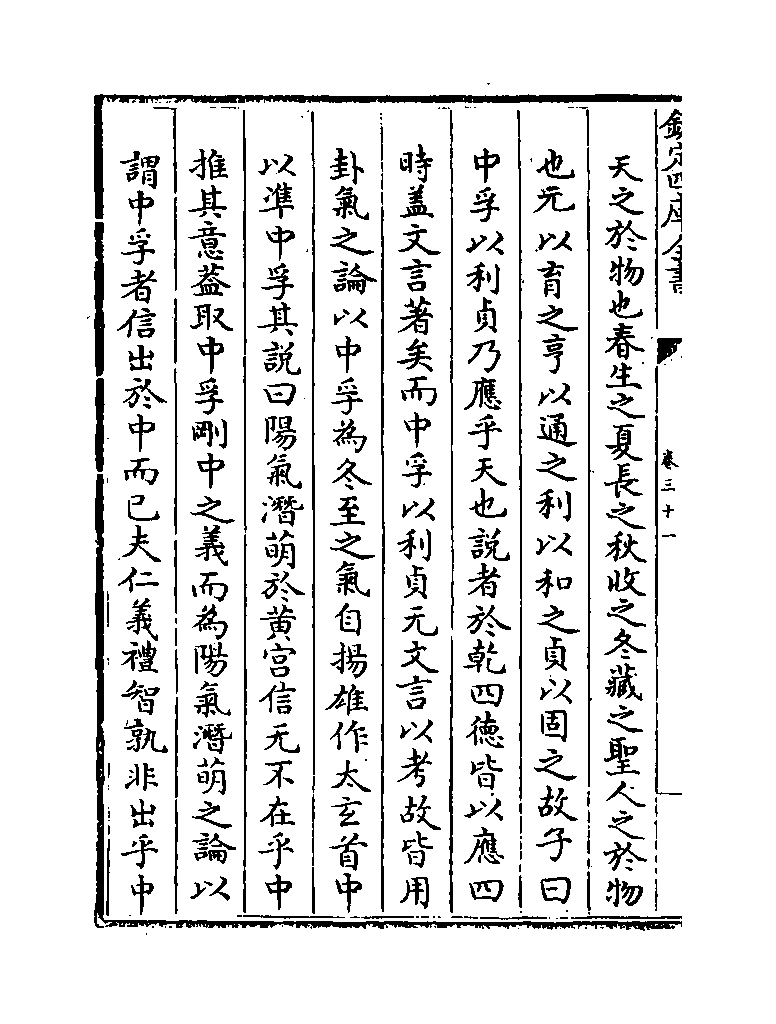 欽定四庫全書
卷三十一
天之於物也春生之夏長之秋收之冬藏之聖人之於物
也元以育之亨以通之利以和之貞以固之故子曰
中孚以利貞乃應乎天也説者於乾四徳皆以應四
時盖文言著矣而中孚以利貞无文言以考故皆用
卦氣之論以中孚為冬至之氣自揚雄作太玄首中
以準中孚其説曰陽氣潛萌於黄宫信无不在乎中
推其意葢取中孚剛中之義而為陽氣潛萌之論以
謂中孚者信出於中而已夫仁義禮智孰非出乎中